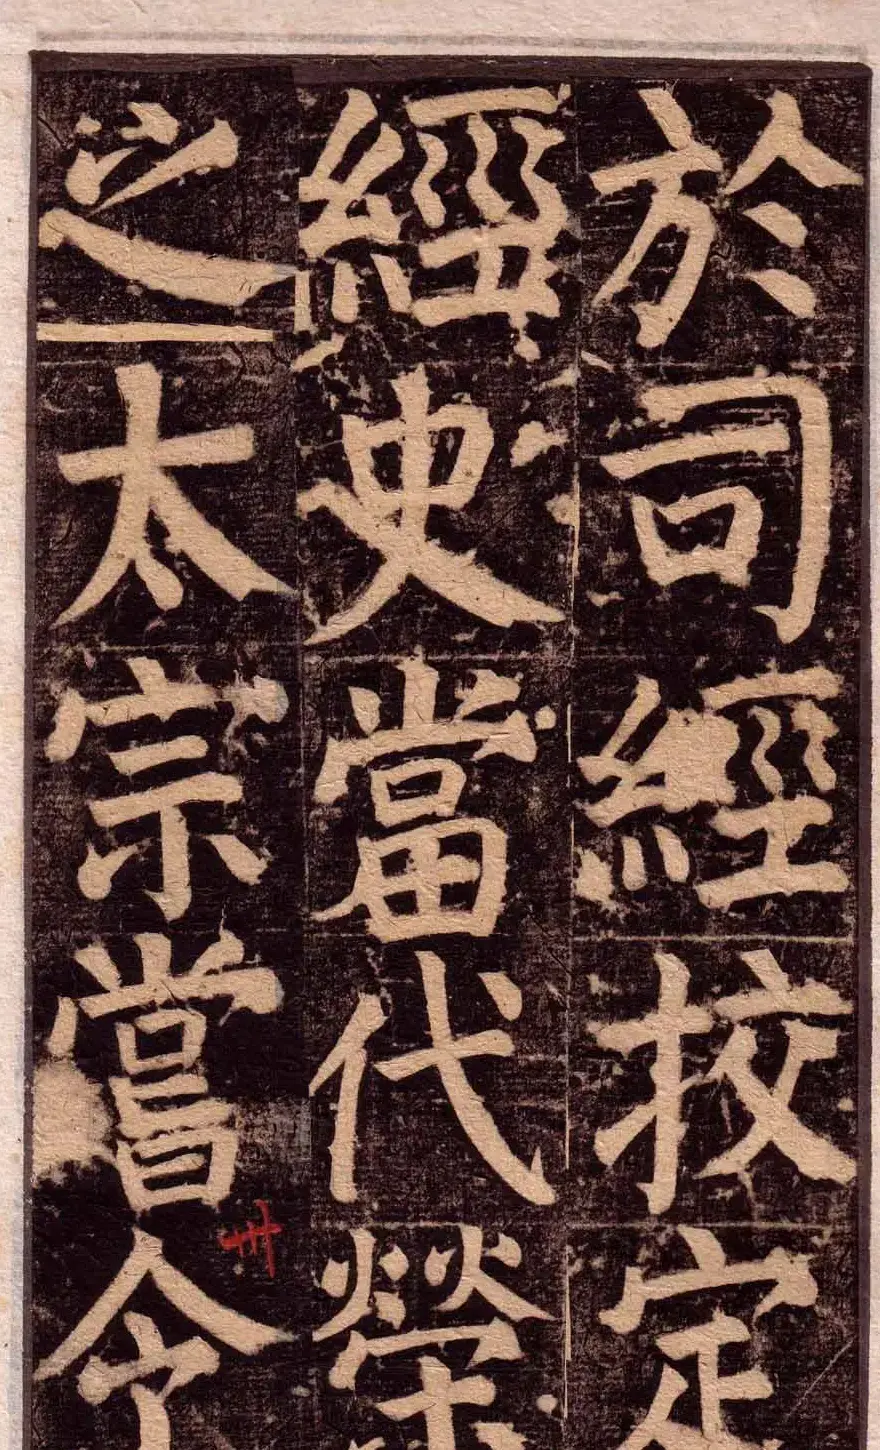 於司經挍定
經史當代榮
之太宗嘗令